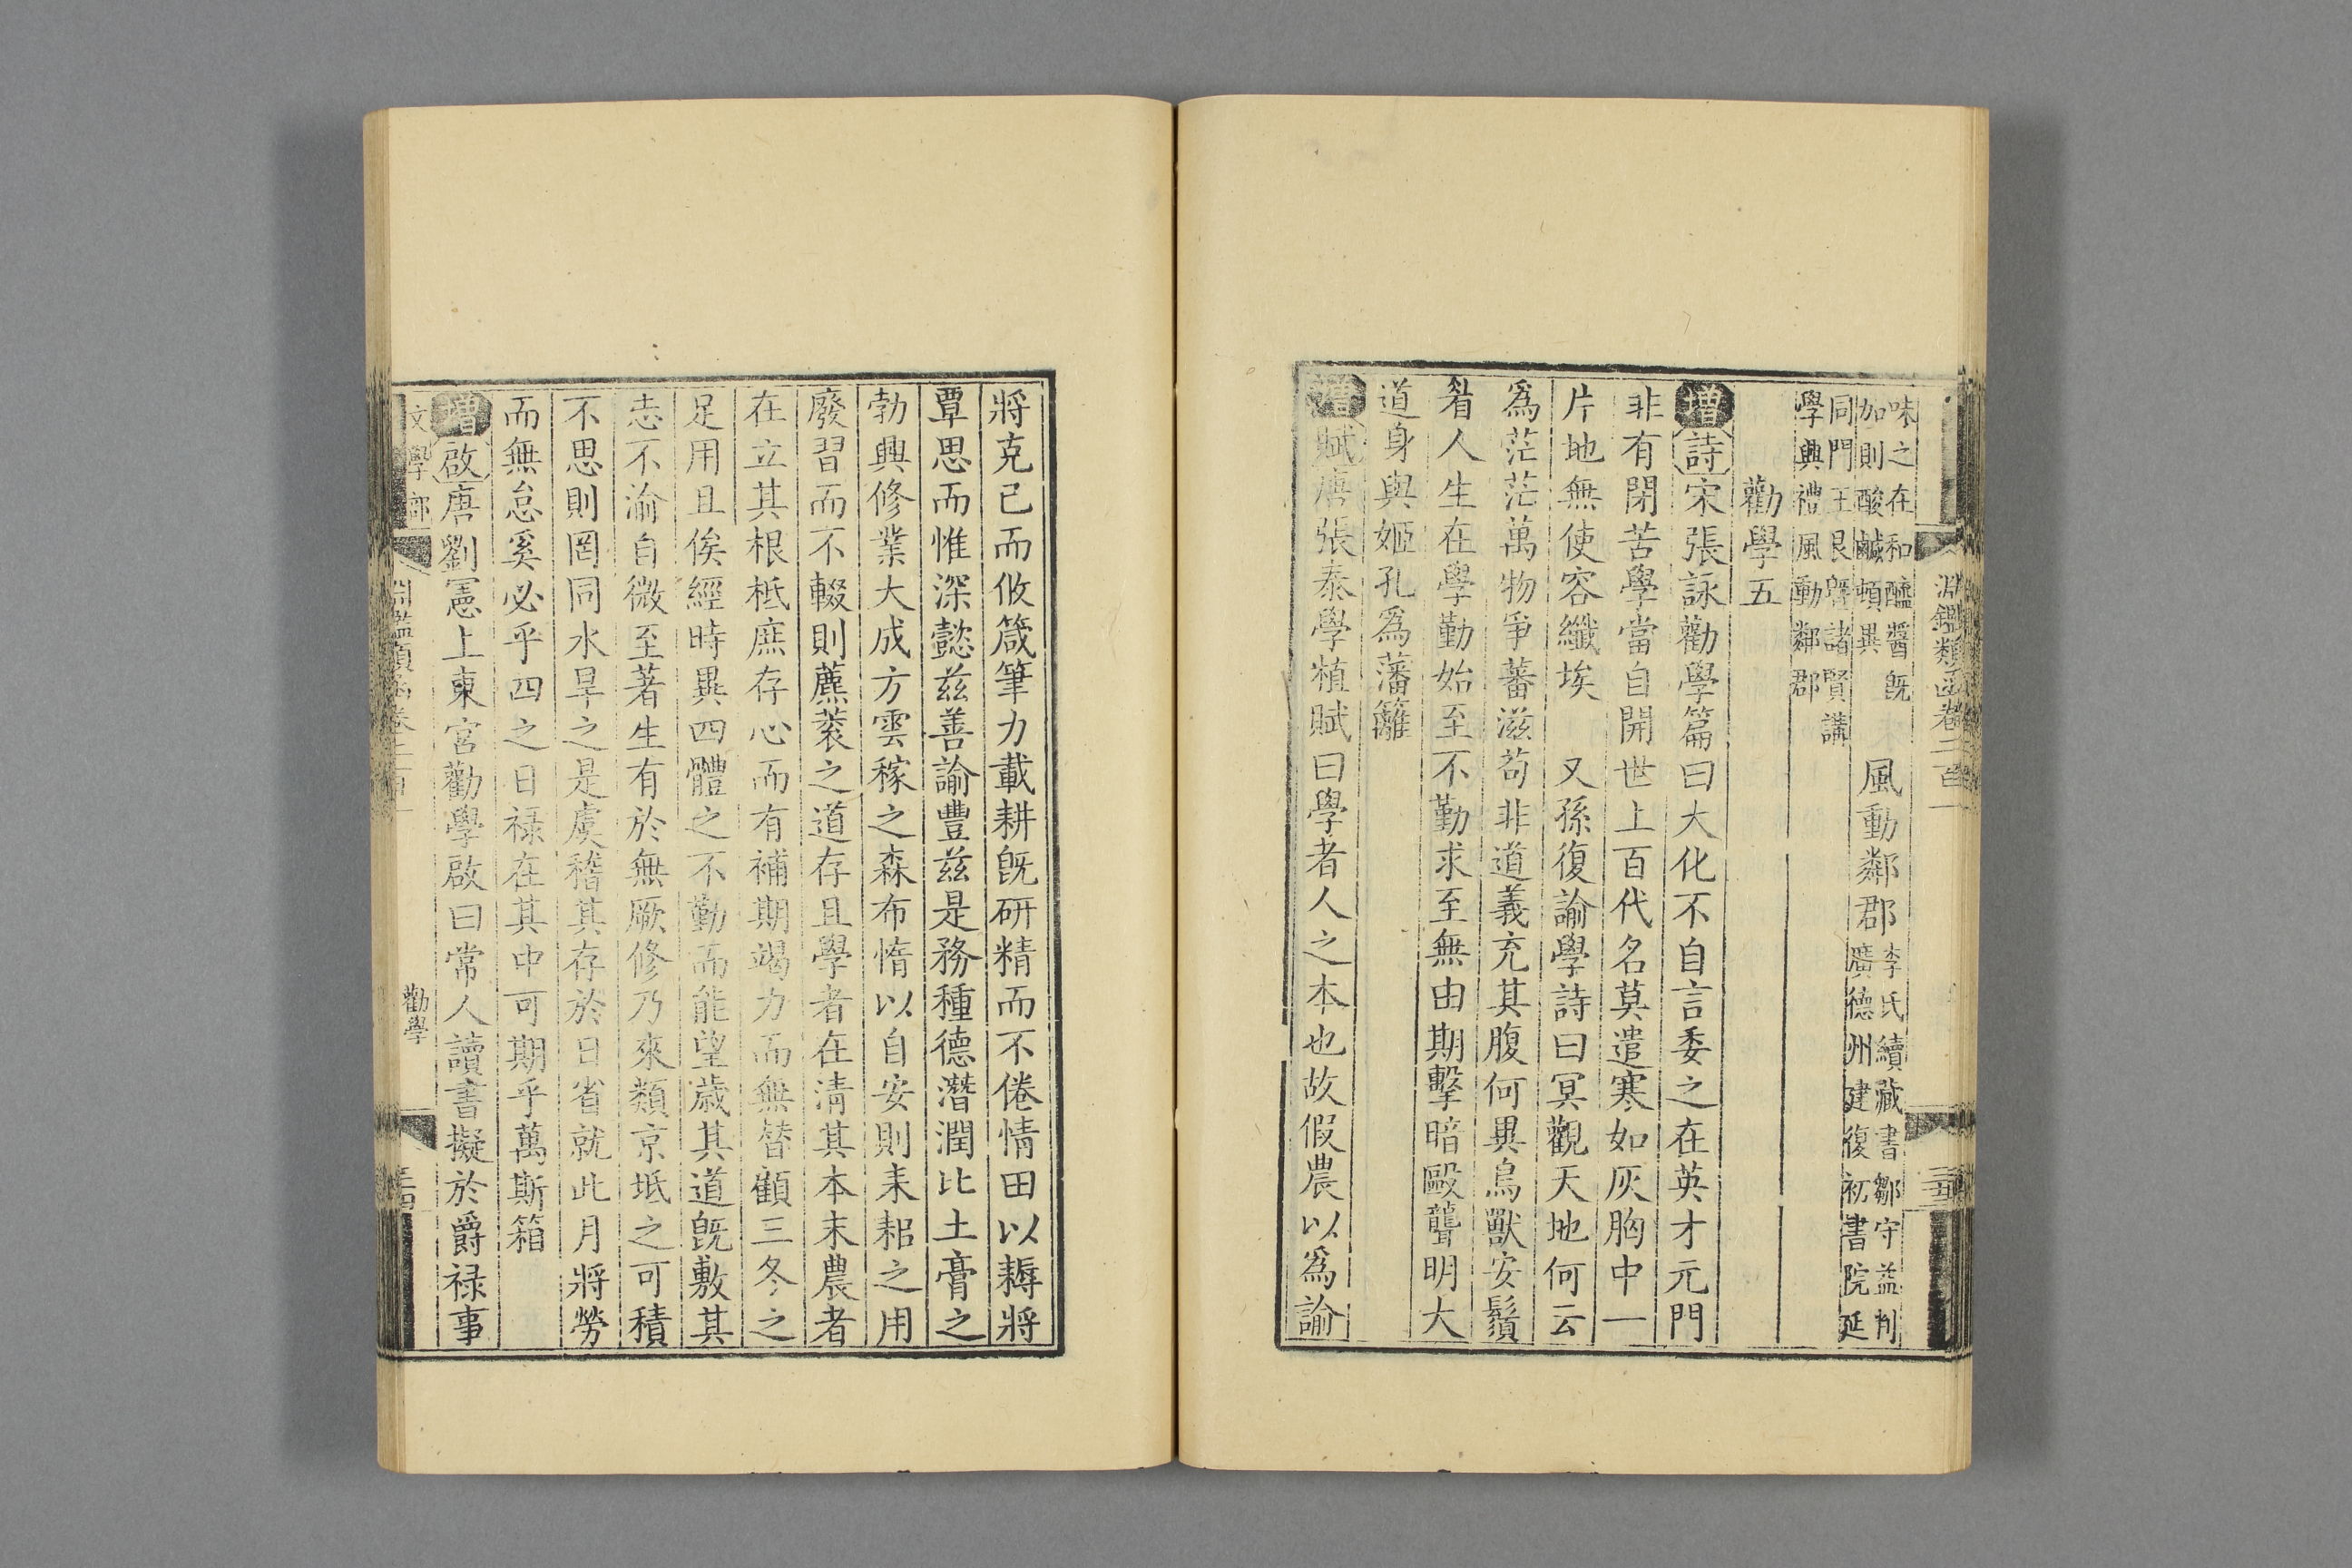 淵鑑類函卷二百一
味之在和醯醬既
加則酸鹹頓異
風動鄰郡
李氏續藏書鄒守益判
廣德州建復初書院延
同門王艮曁諸賢講
學興禮風動鄰郡
勸學五
增詩宋張詠勸學篇曰大化不自言委之在英才元門
非有閉苦學當自開世上百代名莫遣寒如灰胸中一
片地無使容纖埃 又孫復諭學詩曰冥觀天地何云
爲茫茫萬物爭蕃滋茍非道義充其腹何異鳥獸安鬚
睂人生在學勤始至不勤求至無由期擊暗毆聾明大
道身與姬孔爲藩籬
增賦唐張泰學植賦曰學者人之本也故假農以爲諭
將克己而攸箴筆力載耕旣研精而不倦情田以耨將
覃思而惟深懿兹善諭豐兹是務種德潛潤比土膏之
勃興修業大成方雲稼之森布惰以自安則耒耜之用
廢習而不輟則藨蓘之道存且學者在清其本末農者
在立其根柢庶存心而有補期竭力而無替顧三冬之
足用且俟經時異四體之不勤而能望歲其道旣敷其
志不渝自微至著生有於無厥修乃來類京坻之可積
不思則罔同水旱之是虞稽其存於日省就此月將勞
而無怠奚必乎四之日祿在其中可期乎萬斯箱
增啟唐劉憲上東宮勸學啟曰常人讀書擬於爵祿事
文學部
淵鑑類函卷二百一
勸學